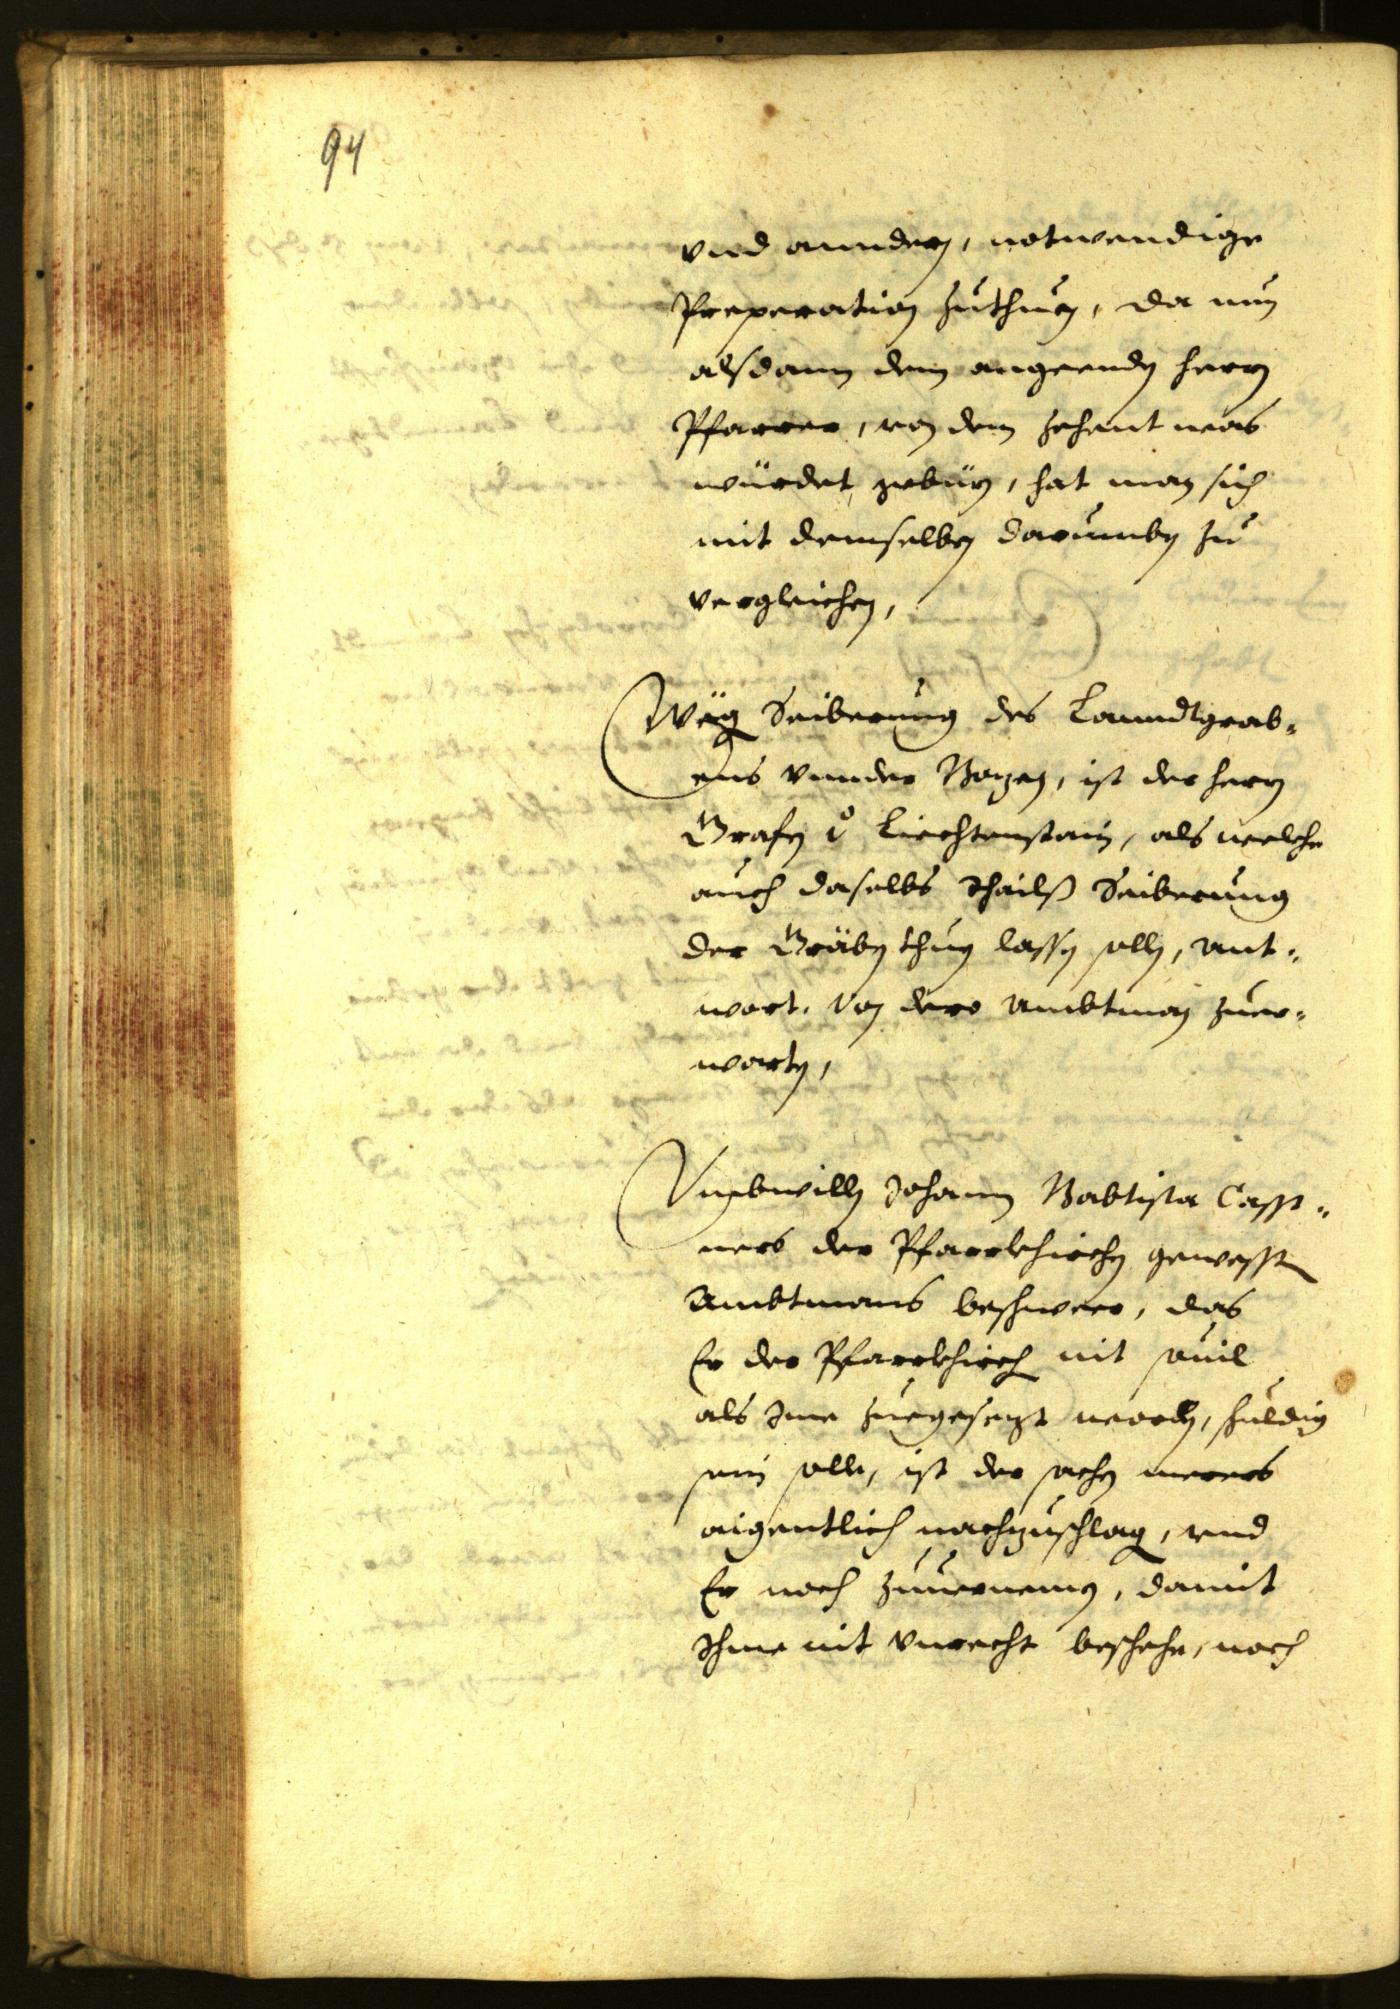 94
vnd anndern, notwendige
Preperation zúthúen, da nun
alsdann dem angeenden herrn
Pfarrer, von dem zehent was
würdet gebürn, hat man sich
mit demselben darúmben zú
vergleichen,
Weg Seiberúng des Lanndtgrab-
ens vnnder Bozen, ist der herrn
Grafen v Liechtenstain, als welche
aúch daselbs thails Seiberúng
der Gräben thúen lassen sollen, ant-
wort, von dero Ambtman zúer-
warten,
Vmbwillen Johann Babtista Casst-
ners der Pfarrkhirchen gewessten
Ambtmans beschwer, das
Er der Pfarrkhirch nit souil
als Ime zúegesezt worden, schúldig
sein solle, ist der sachen merers
aigentlich nachzúschlagen, vnd
Er noch zúuernemen, damit
Ihme nit vnrecht beschehe, noch